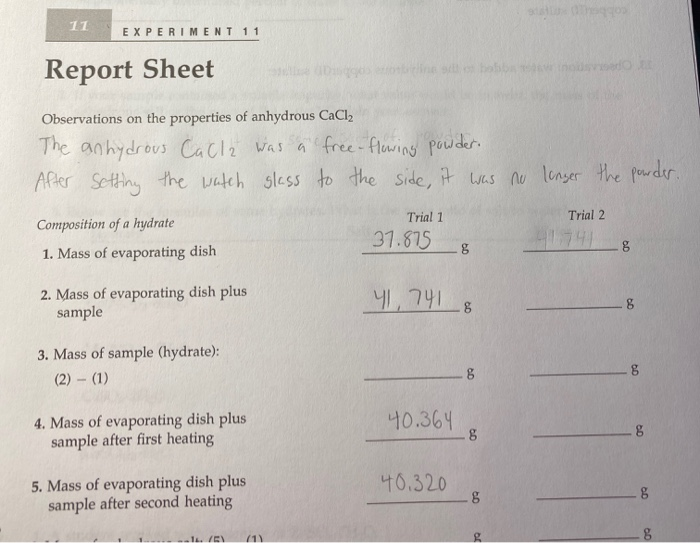 11 EXPERIMENT 11
Report Sheet
Observations on the properties of anhydrous CaCl₂
The anhydrous CaCl₂ was a free-flowing powder.
After setting the watch glass to the side, it was no longer the powder.
Composition of a hydrate Trial 1 Trial 2
1. Mass of evaporating dish 37.875 g 41.741 g
2. Mass of evaporating dish plus
sample 41,741 g g
3. Mass of sample (hydrate):
(2) – (1) g g
4. Mass of evaporating dish plus
sample after first heating 40.364 g g
5. Mass of evaporating dish plus
sample after second heating 40.320 g g
(5) (1) g g